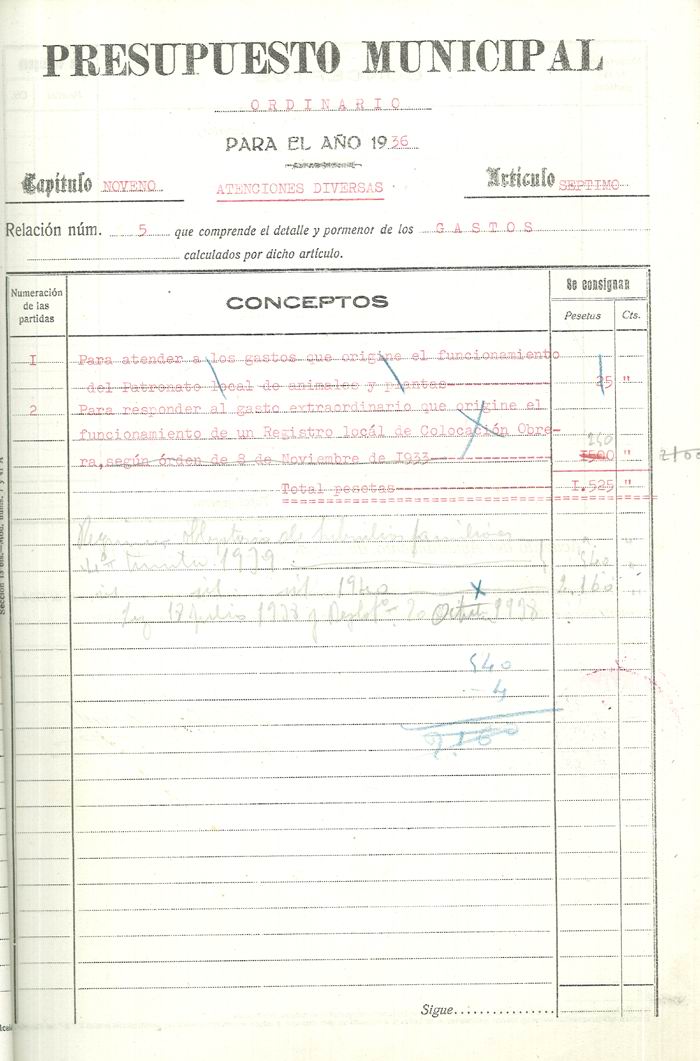 PRESUPUESTO MUNICIPAL
ORDINARIO
PARA EL AÑO 1936
Capítulo NOVENO ATENCIONES DIVERSAS Artículo SEPTIMO
Relación núm. 5 que comprende el detalle y pormenor de los GASTOS
calculados por dicho artículo.
Numeración de las partidas CONCEPTOS Se consignan
Pesetas Cts.
I Para atender a los gastos que origine el funcionamiento
del Patronato local de animales y plantas 25 "
2 Para responder al gasto extraordinario que origine el
funcionamiento de un Registro locál de Colocación Obre-
240
ra,según órden de 8 de Noviembre de I933 I500 "
Total pesetas I.525 "
1939 540
id id id 1940 2.160
Ley 18 julio 1938 y 20 Octubre 1938
540
4
2.160
Sigue